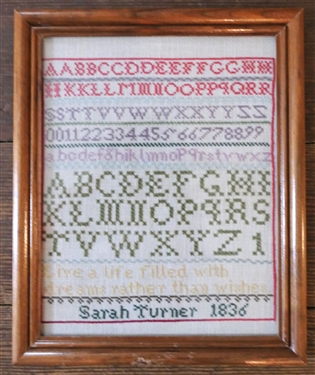 AABBCCDDEEFFGGHH
IIKKLLMMNNOOPPQQRR
SSTTVVWWXXYYZZ
00112233445566778899
abcdefghiklmnopqrstvwxz
ABCDEFGHI
KLMNOPQRS
TVWXYZ 1
Live a life filled with
dreams rather than wishes
Sarah Turner 1836